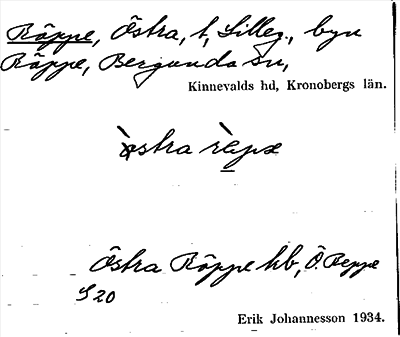 Räppe, Östra, t, Lilleg., byn
Räppe, Bergunda sn,
Kinnevalds hd, Kronobergs län.
östra rèpæ
Östra Räppe hb, Ö. Reppe
S 20
Erik Johannesson 1934.